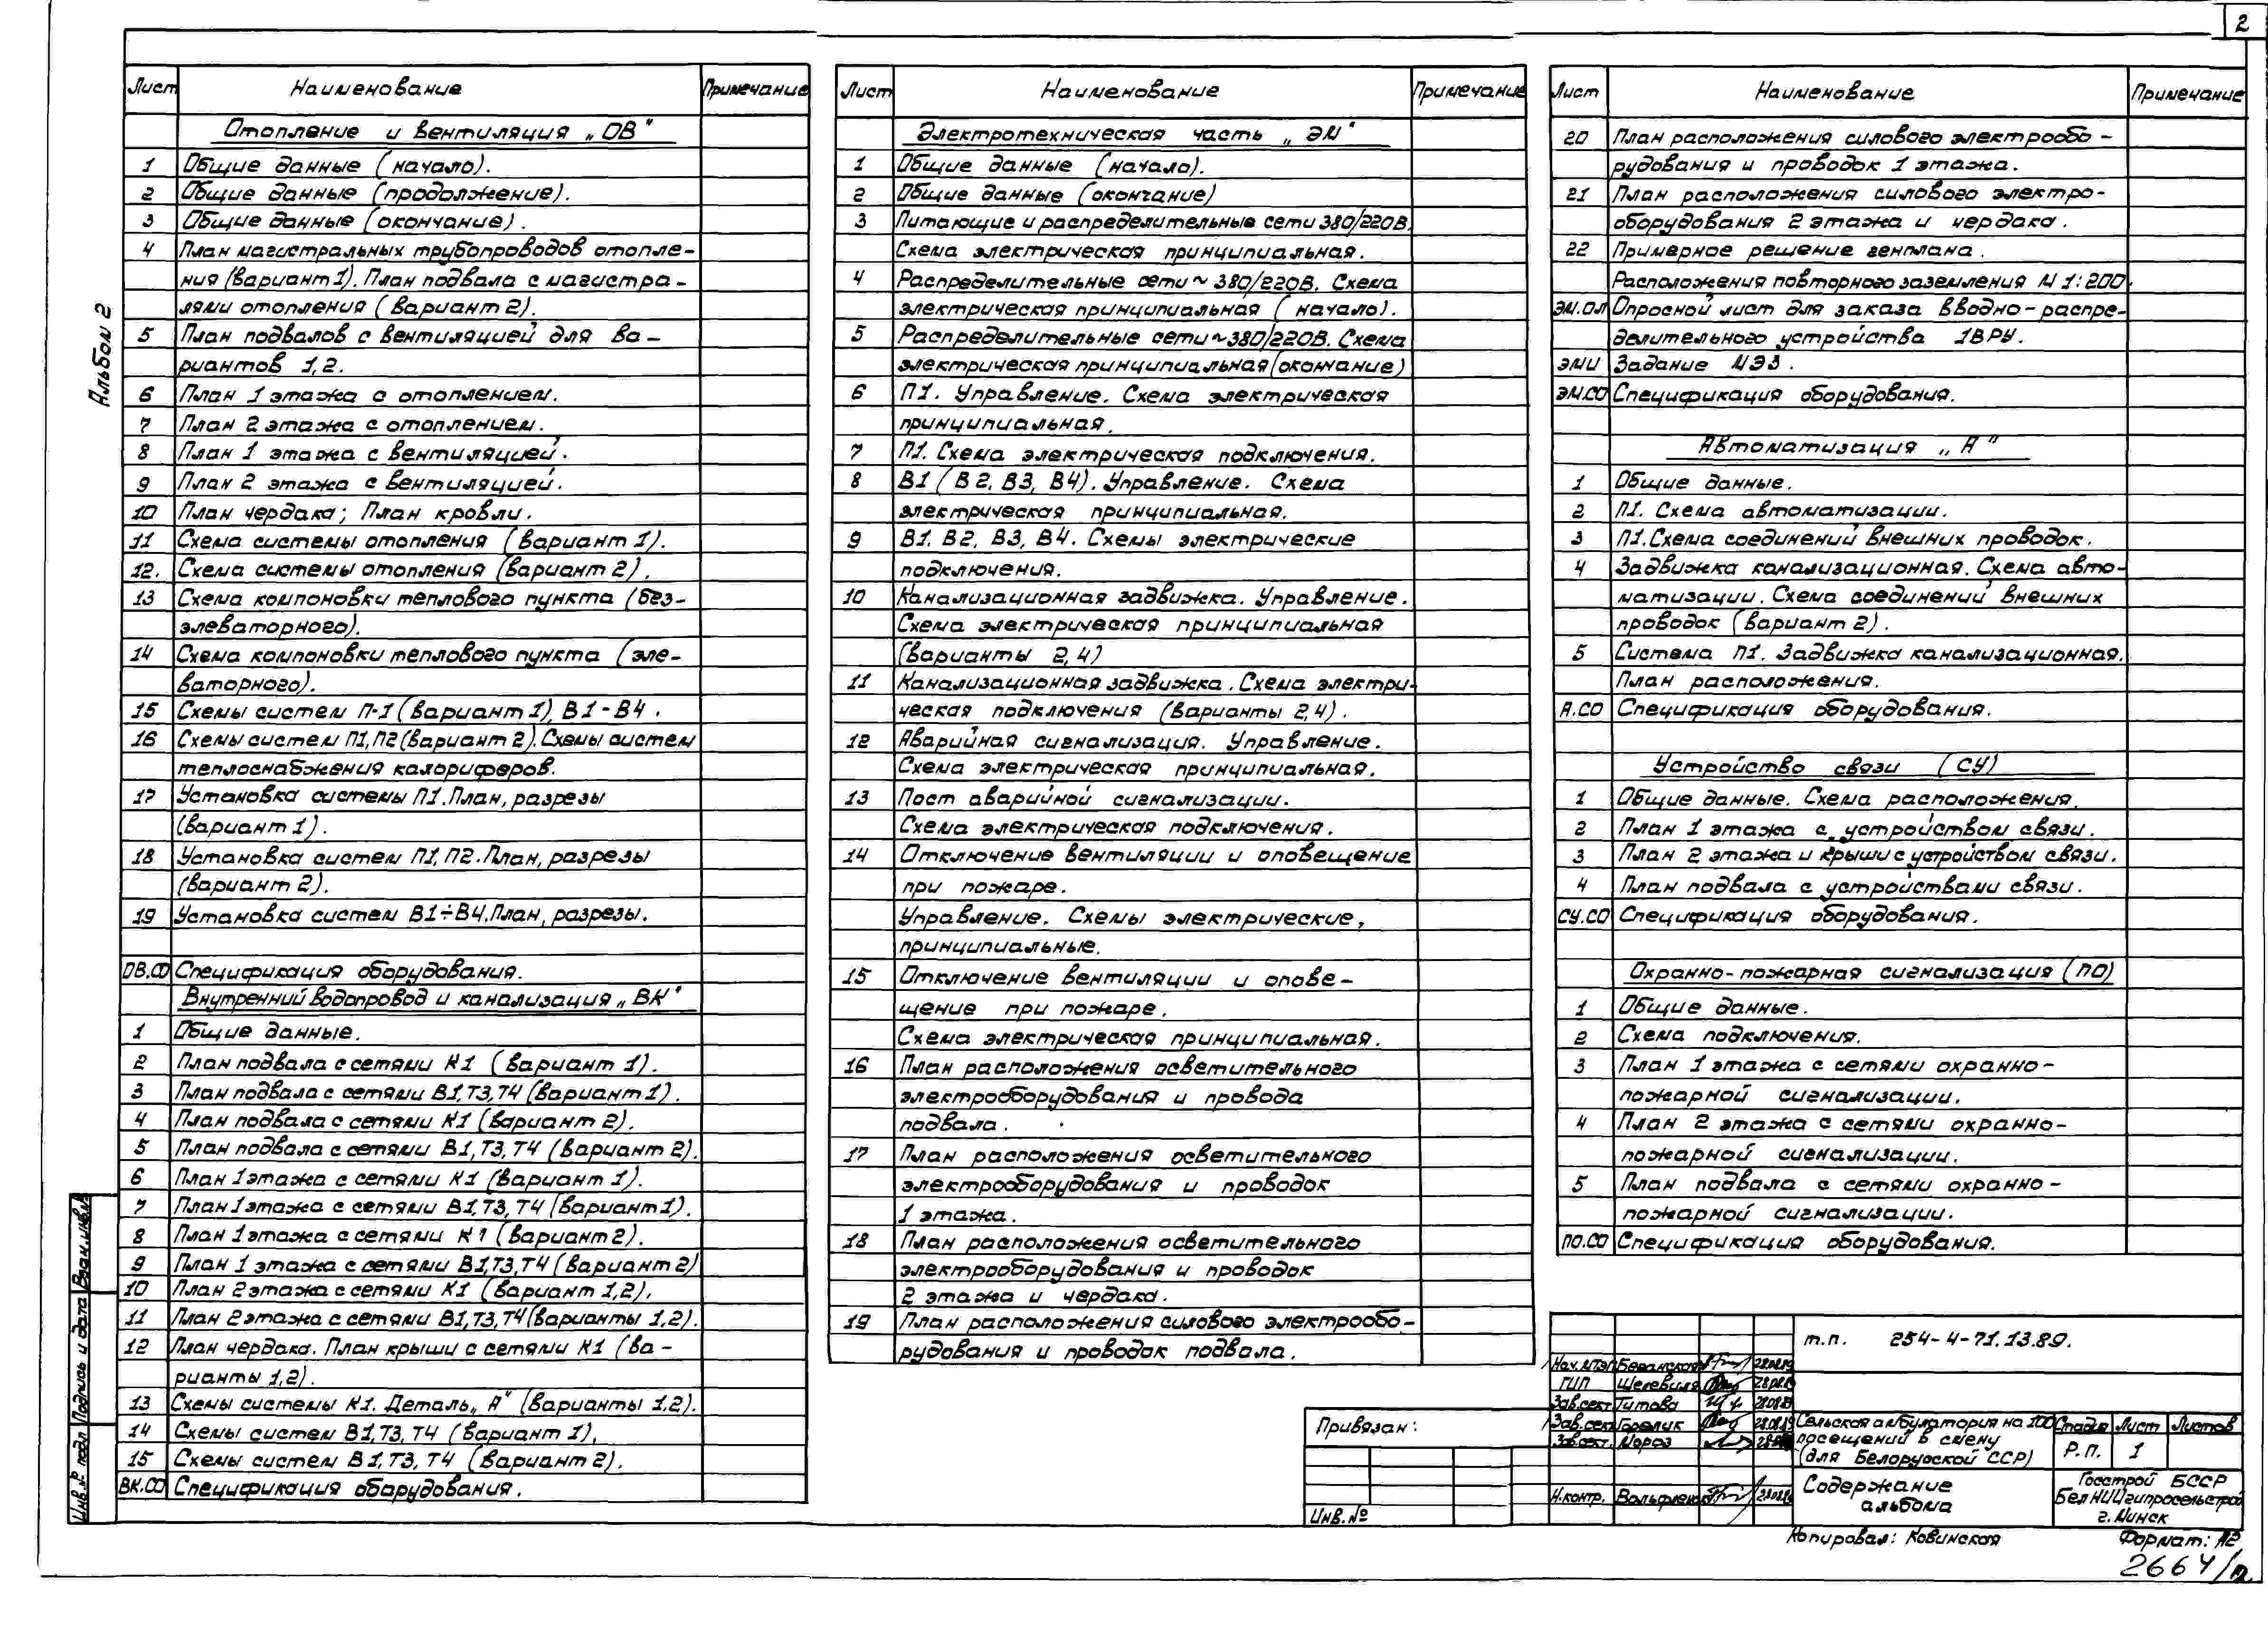 2
Альбом 2
Лист Наименование Примечание
Отопление и вентиляция „ОВ"
1 Общие данные (начало).
2 Общие данные (продолжение).
3 Общие данные (окончание).
4 План магистральных трубопроводов отопле-
ния (вариант 1). План подвала с магистра-
лями отопления (вариант 2).
5 План подвалов с вентиляцией для ва-
риантов 1,2.
6 План 1 этажа с отоплением.
7 План 2 этажа с отоплением.
8 План 1 этажа с вентиляцией.
9 План 2 этажа с вентиляцией.
10 План чердака; План кровли.
11 Схема системы отопления (вариант 1).
12. Схема системы отопления (вариант 2).
13 Схема компоновки теплового пункта (без-
элеваторного).
14 Схема компоновки теплового пункта (эле-
ваторного).
15 Схемы систем П-1 (вариант 1), В1-В4.
16 Схемы систем П1, П2 (вариант 2). Схемы систем
теплоснабжения калориферов.
17 Установка системы П1. План, разрезы
(вариант 1).
18 Установка систем П1, П2. План, разрезы
(вариант 2).
19 Установка систем В1÷В4. План, разрезы.
ОВ.СО Спецификация оборудования.
Внутренний водопровод и канализация „ВК"
1 Общие данные.
2 План подвала с сетями К1 (вариант 1).
3 План подвала с сетями В1, Т3, Т4 (вариант 1).
4 План подвала с сетями К1 (вариант 2).
5 План подвала с сетями В1, Т3, Т4 (вариант 2).
6 План 1 этажа с сетями К1 (вариант 1).
7 План 1 этажа с сетями В1, Т3, Т4 (вариант 1).
8 План 1 этажа с сетями К1 (вариант 2).
9 План 1 этажа с сетями В1, Т3, Т4 (вариант 2)
10 План 2 этажа с сетями К1 (вариант 1,2).
11 План 2 этажа с сетями В1, Т3, Т4 (варианты 1,2).
12 План чердака. План крыши с сетями К1 (ва-
рианты 1,2).
13 Схемы системы К1. Деталь „А" (варианты 1,2).
14 Схемы систем В1, Т3, Т4 (вариант 1).
15 Схемы систем В1, Т3, Т4 (вариант 2).
ВК.СО Спецификация оборудования.
Лист Наименование Примечание
Электротехническая часть „ЭМ"
1 Общие данные (начало).
2 Общие данные (окончание)
3 Питающие и распределительные сети 380/220В.
Схема электрическая принципиальная.
4 Распределительные сети ~ 380/220В. Схема
электрическая принципиальная (начало).
5 Распределительные сети ~380/220В. Схема
электрическая принципиальная (окончание)
6 П1. Управление. Схема электрическая
принципиальная.
7 П1. Схема электрическая подключения.
8 В1 (В2, В3, В4). Управление. Схема
электрическая принципиальная.
9 В1. В2, В3, В4. Схемы электрические
подключения.
10 Канализационная задвижка. Управление.
Схема электрическая принципиальная
(варианты 2,4)
11 Канализационная задвижка. Схема электри-
ческая подключения (варианты 2,4).
12 Аварийная сигнализация. Управление.
Схема электрическая принципиальная.
13 Пост аварийной сигнализации.
Схема электрическая подключения.
14 Отключение вентиляции и оповещение
при пожаре.
Управление. Схемы электрические,
принципиальные.
15 Отключение вентиляции и опове-
щение при пожаре.
Схема электрическая принципиальная.
16 План расположения осветительного
электрооборудования и провода
подвала.
17 План расположения осветительного
электрооборудования и проводок
1 этажа.
18 План расположения осветительного
электрооборудования и проводок
2 этажа и чердака.
19 План расположения силового электрообо-
рудования и проводок подвала.
Лист Наименование Примечание
20 План расположения силового электрообо-
рудования и проводок 1 этажа.
21 План расположения силового электро-
оборудования 2 этажа и чердака.
22 Примерное решение генплана.
Расположения повторного заземления М 1:200.
ЭМ.ОЛ Опросной лист для заказа вводно-распре-
делительного устройства 1ВРУ.
ЭМИ Задание МЭЗ.
ЭМ.СО Спецификация оборудования.
Автоматизация „А"
1 Общие данные.
2 П1. Схема автоматизации.
3 П1. Схема соединений внешних проводок.
4 Задвижка канализационная. Схема авто-
матизации. Схема соединений внешних
проводок (вариант 2).
5 Система П1. Задвижка канализационная.
План расположения.
А.СО Спецификация оборудования.
Устройство связи (СУ)
1 Общие данные. Схема расположения.
2 План 1 этажа с устройством связи.
3 План 2 этажа и крыши с устройством связи.
4 План подвала с устройствами связи.
СУ.СО Спецификация оборудования.
Охранно-пожарная сигнализация (ПО)
1 Общие данные.
2 Схема подключения.
3 План 1 этажа с сетями охранно-
пожарной сигнализации.
4 План 2 этажа с сетями охранно-
пожарной сигнализации.
5 План подвала с сетями охранно-
пожарной сигнализации.
ПО.СО Спецификация оборудования.
Инв.№ подл Подпись и дата Взам.инв.№
Привязан:
Инв.№
Нач. Беганская
ГИП Шелевиля 28.02.89
Зав.сект. Титова 28.02.89
Зав.сект. Горелик 28.02.89
Зав.сект. Мороз
Н.контр. 28.02.89
т.п. 254-4-71.13.89.
Сельская амбулатория на 100
посещений в смену
(для Белорусской ССР)
Стадия Лист Листов
Р.П. 1
Содержание
альбома
Госстрой БССР
БелНИИгипросельстрой
г. Минск
Копировал: Ковинская Формат: А2
2664/2